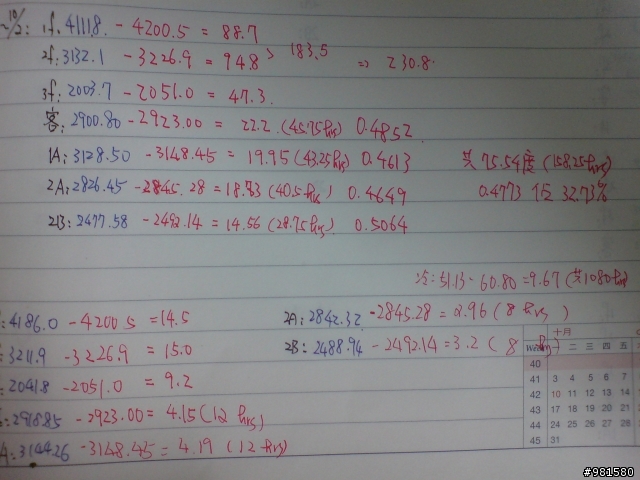 10/2: 1f. 4111.8. - 4200.5 = 88.7
2f: 3132.1 - 3226.9 = 94.8 > 183.5 => 230.8
3f: 2003.7 - 2051.0 = 47.3
客: 2900.80 - 2923.00 = 22.2 (45.75hrs) 0.4852
1A: 3128.50 - 3148.45 = 19.95 (43.25hrs) 0.4613 共 75.54度 (158.25hrs)
2A: 2826.45 - 2845.28 = 18.83 (40.5hrs) 0.4649 0.4773 佔 32.73%
2B: 2477.58 - 2492.14 = 14.56 (28.75hrs) 0.5064
冷: 51.13 - 60.80 = 9.67 (共1080hr)
: 4186.0 - 4200.5 = 14.5 2A: 2842.32 - 2845.28 = 2.96 (8 hrs)
: 3211.9 - 3226.9 = 15.0 2B: 2488.94 - 2492.14 = 3.2 (8 hrs)
: 2041.8 - 2051.0 = 9.2
: 2918.85 - 2923.00 = 4.15 (12 hrs)
A: 3144.26 - 3148.45 = 4.19 (12 hrs)
十月
二 三 四 五
40
41 3 4 5 6 7
42 10 11 12 13 14
43 17 18 19 20 21
44 24 25 26 27 28
45 31
#981580